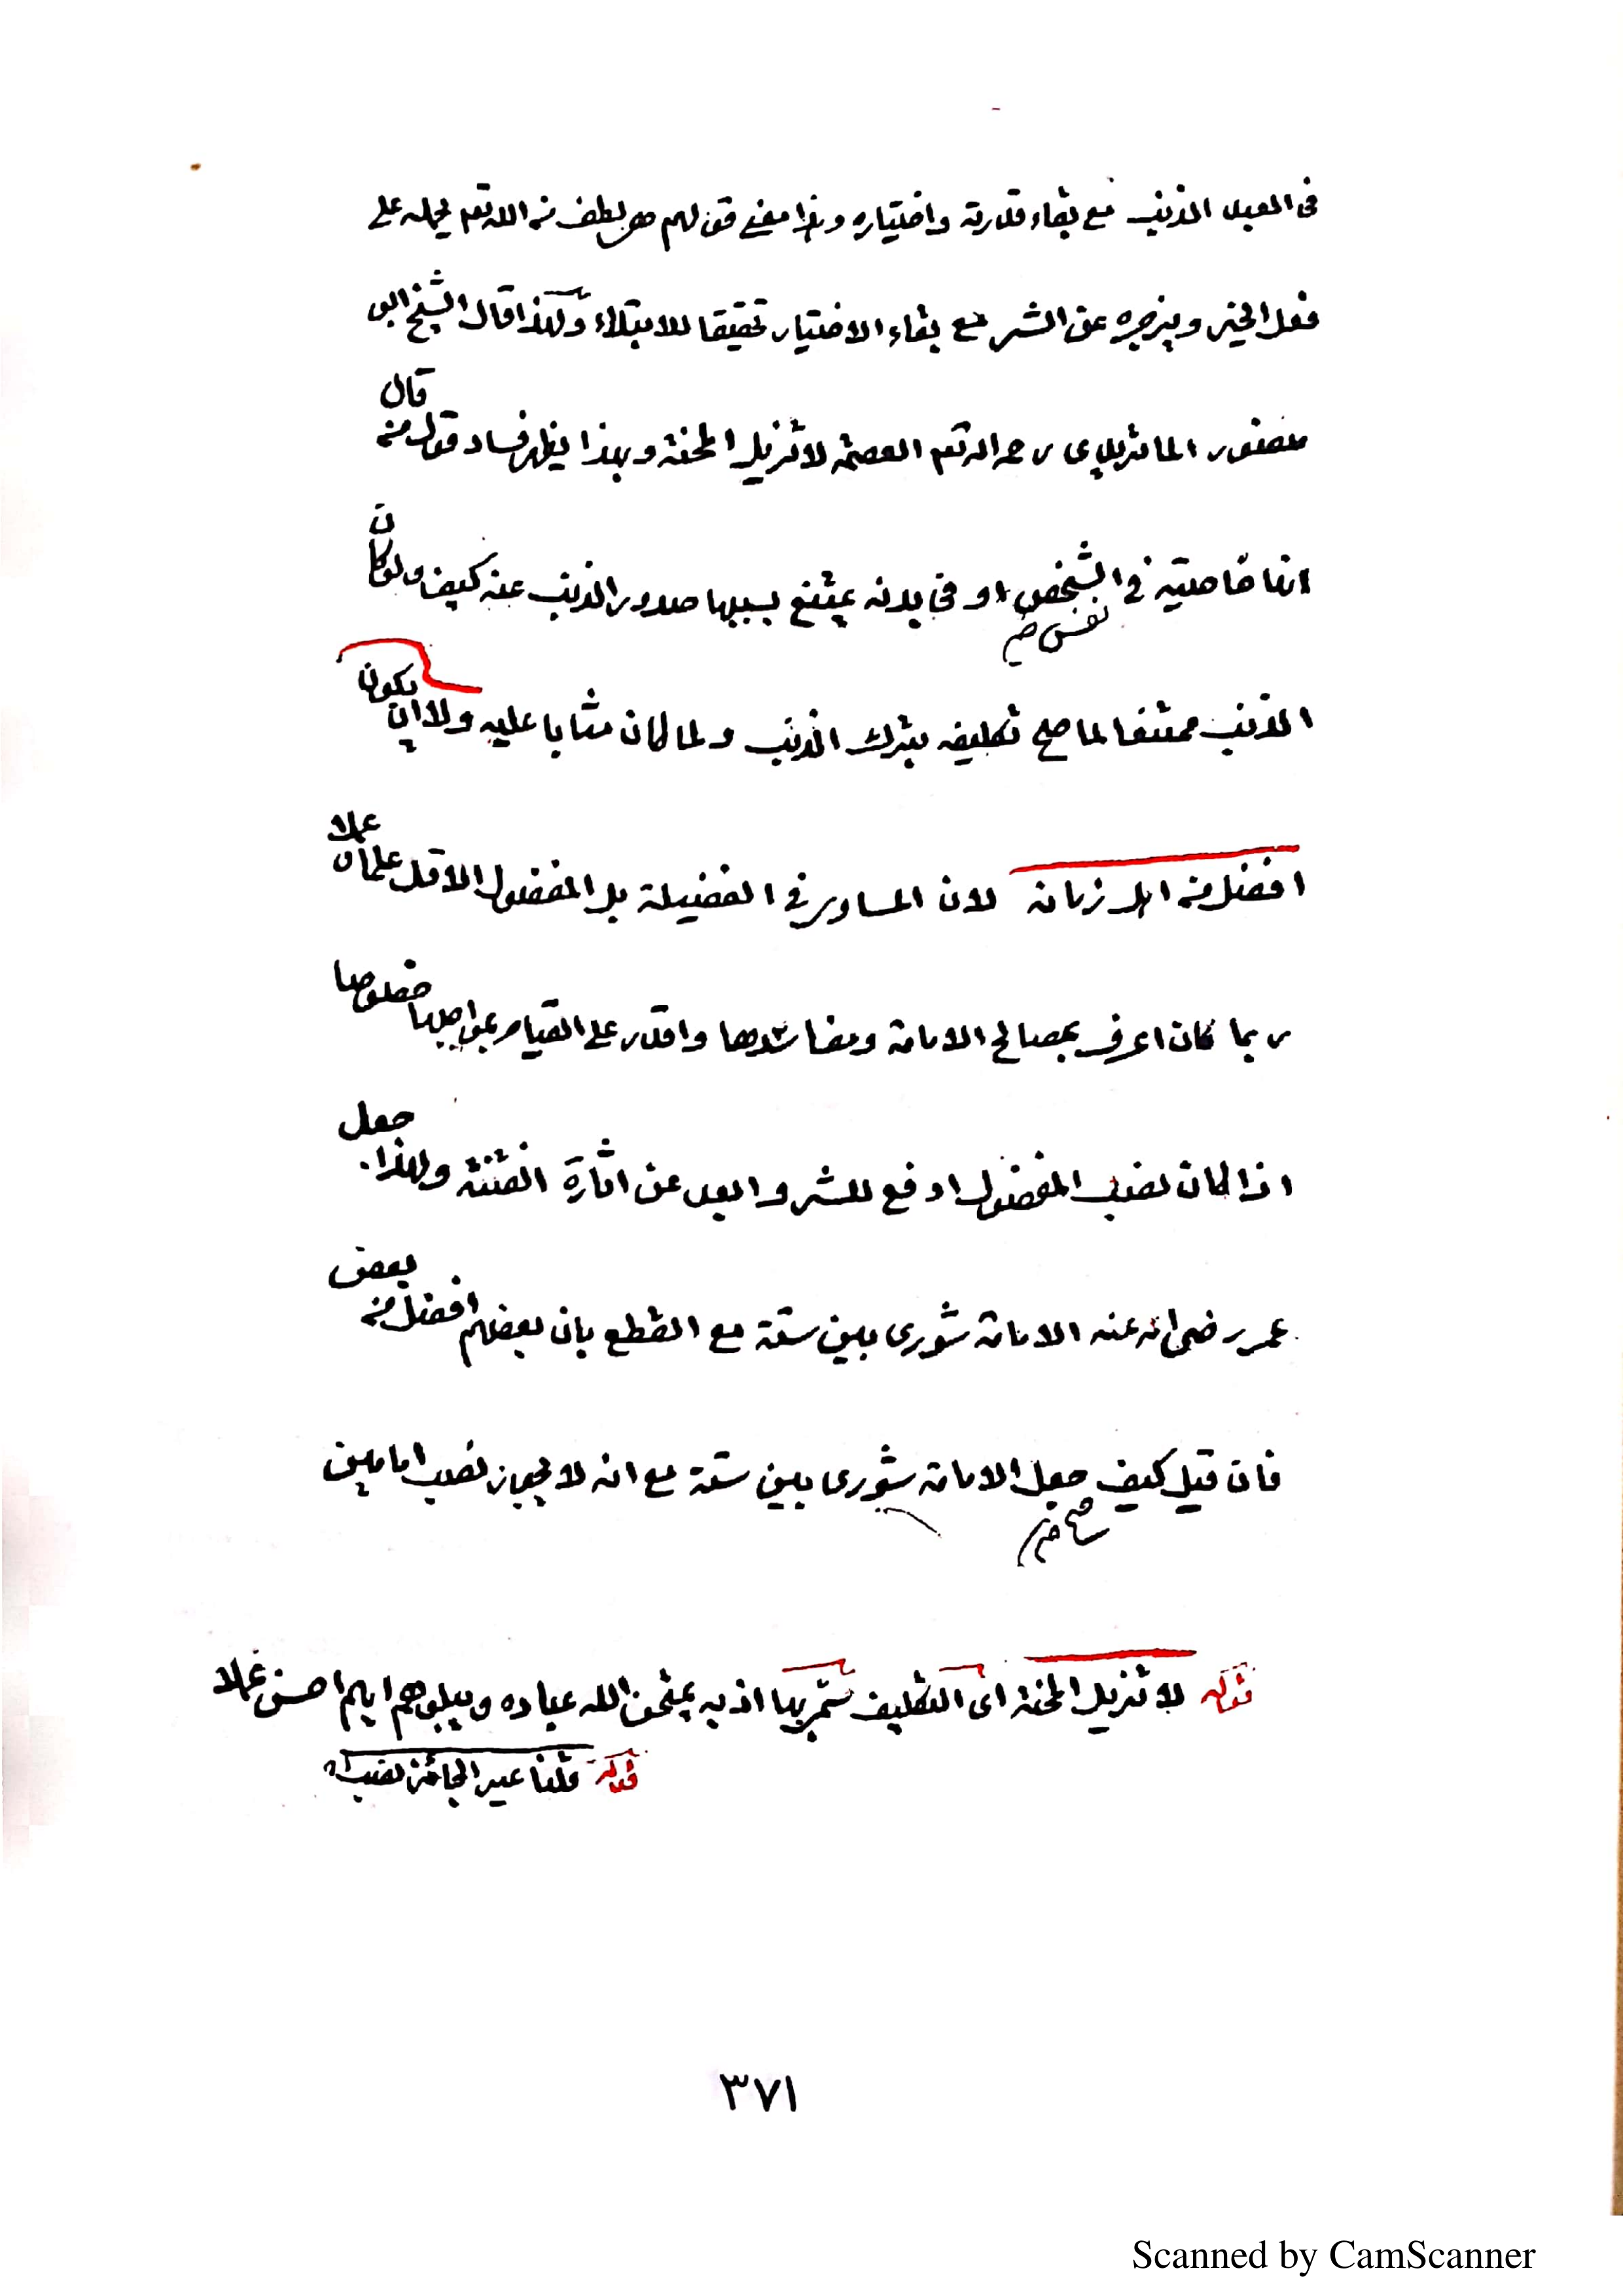 فى العبد الذنب مع بقاء قدرته واختياره وهذا معنى قولهم هى لطف من الله تع يحمله على
فعل الخير ويزجره عن الشر مع بقاء الاختيار تحقيقا للابتلاء ولهذا قال الشيخ ابو
منصور الماتريدى رحمه الله تع العصمة لا تزيل المحنة وبهذا يظهر فساد قول من قال
انها خاصية فى الشخص او فى بدنه يمتنع بسببها صدور الذنب عنه كيف ولو كان
نفس
الذنب ممتنعا لما صح تكليفه بترك الذنب ولما كان مثابا عليه ولا ان يكون
افضل من اهل زمانه لان المساوى فى الفضيلة بل المفضول الاقل علما و عملا
ربما كان اعرف بمصالح الامامة ومفاسدها واقدر على القيام بمواجبها خصوصا
اذا كان نصب المفضول ادفع للشر وابعد عن اثارة الفتنة ولهذا جعل
عمر رضى الله عنه الامامة شورى بين ستة مع القطع بان بعضهم افضل من بعض
فان قيل كيف جعل الامامة شورى بين ستة مع انه لا يجوز نصب امامين
قوله لا تزيل المحنة اى التكليف سمى بها اذ به يمتحن الله عباده ويبلوهم ايهم احسن عملا
قوله قلنا غير الجائز نصب
٣٧١
Scanned by CamScanner